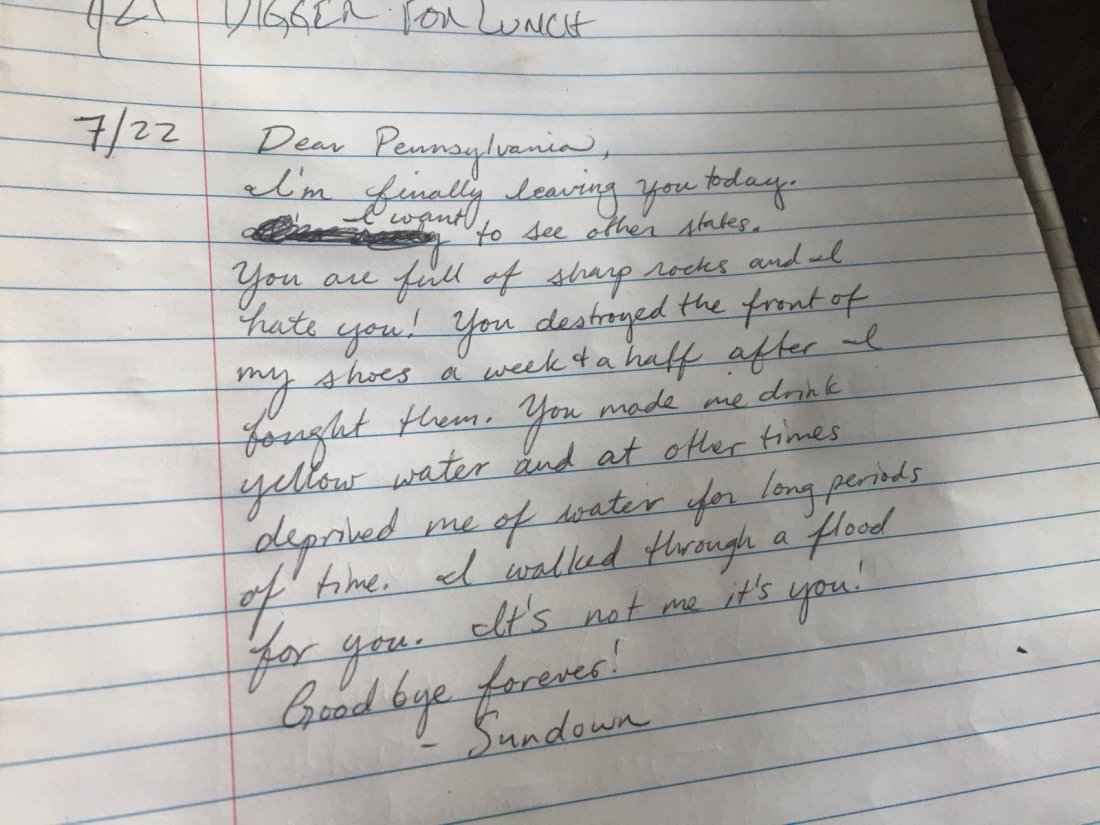 DIGGER FOR LUNCH
7/22 Dear Pennsylvania,
I'm finally leaving you today.
I want to see other states.
You are full of sharp rocks and I
hate you! You destroyed the front of
my shoes a week & a half after I
bought them. You made me drink
yellow water and at other times
deprived me of water for long periods
of time. I walked through a flood
for you. It's not me it's you!
Good bye forever!
- Sundown